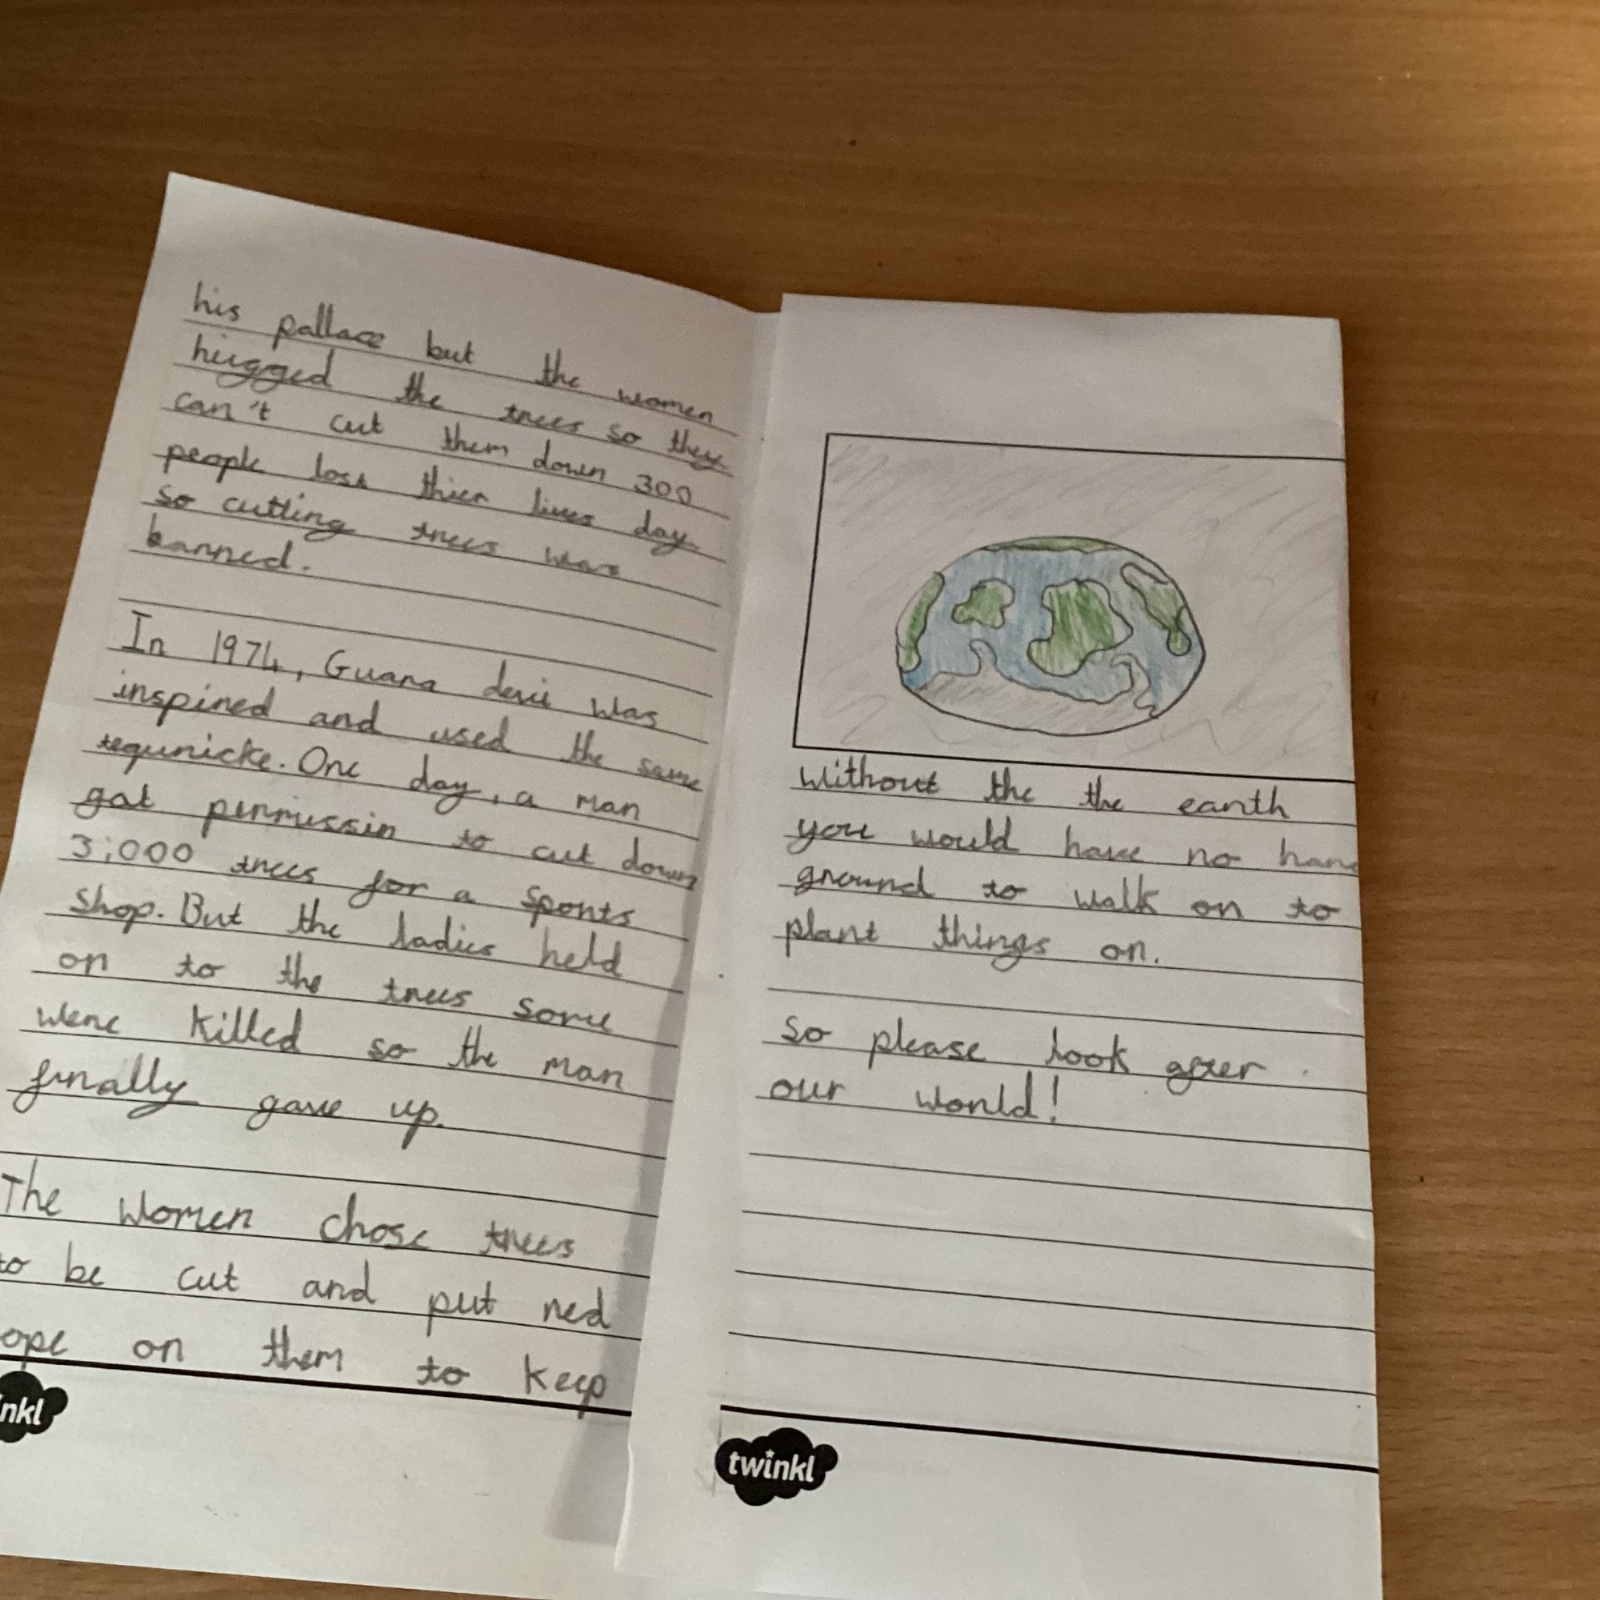 his pallace but the women
hugged the trees so they
can't cut them down 300
people loss thier lives day
so cutting trees was
banned.
In 1974, Guara devi was
inspired and used the same
tequnicke. One day, a man
got permussin to cut down
3;000 trees for a sports
shop. But the ladies held
on to the trees some
were killed so the man
finally gave up.
The women chose trees
to be cut and put red
ope on them to keep
nkl
without the the earth
you would have no hard
ground to walk on to
plant things on.
so please look after
our world!
twinkl